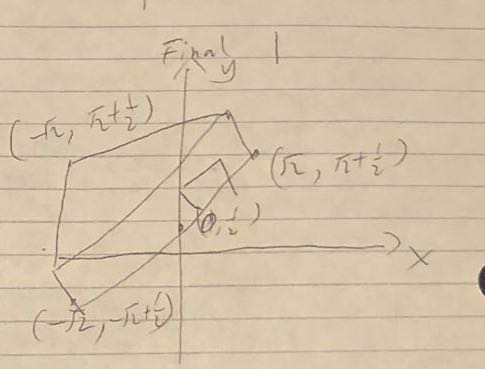 Final 1
y
(-√2, √2+½)
(√2, √2+½)
(0,½)
x
(-√2, -√2+½)